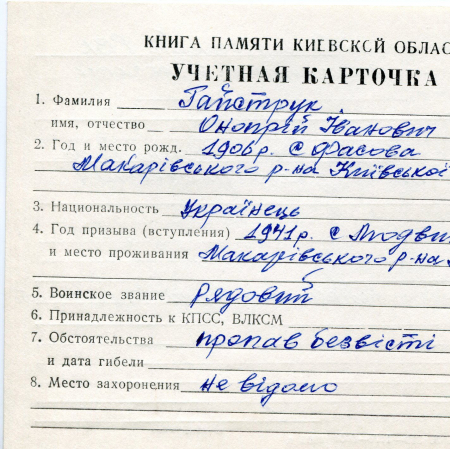 КНИГА ПАМЯТИ КИЕВСКОЙ ОБЛАС
УЧЕТНАЯ КАРТОЧКА
1. Фамилия Гайструк
имя, отчество Онопрій Іванович
2. Год и место рожд. 1906 р. с Фасова
Макарівського р-на Київської
3. Национальность Українець
4. Год призыва (вступления) 1941 р. с
и место проживания Макарівського р-на
5. Воинское звание рядовий
6. Принадлежность к КПСС, ВЛКСМ
7. Обстоятельства пропав безвісті
и дата гибели
8. Место захоронения не відомо